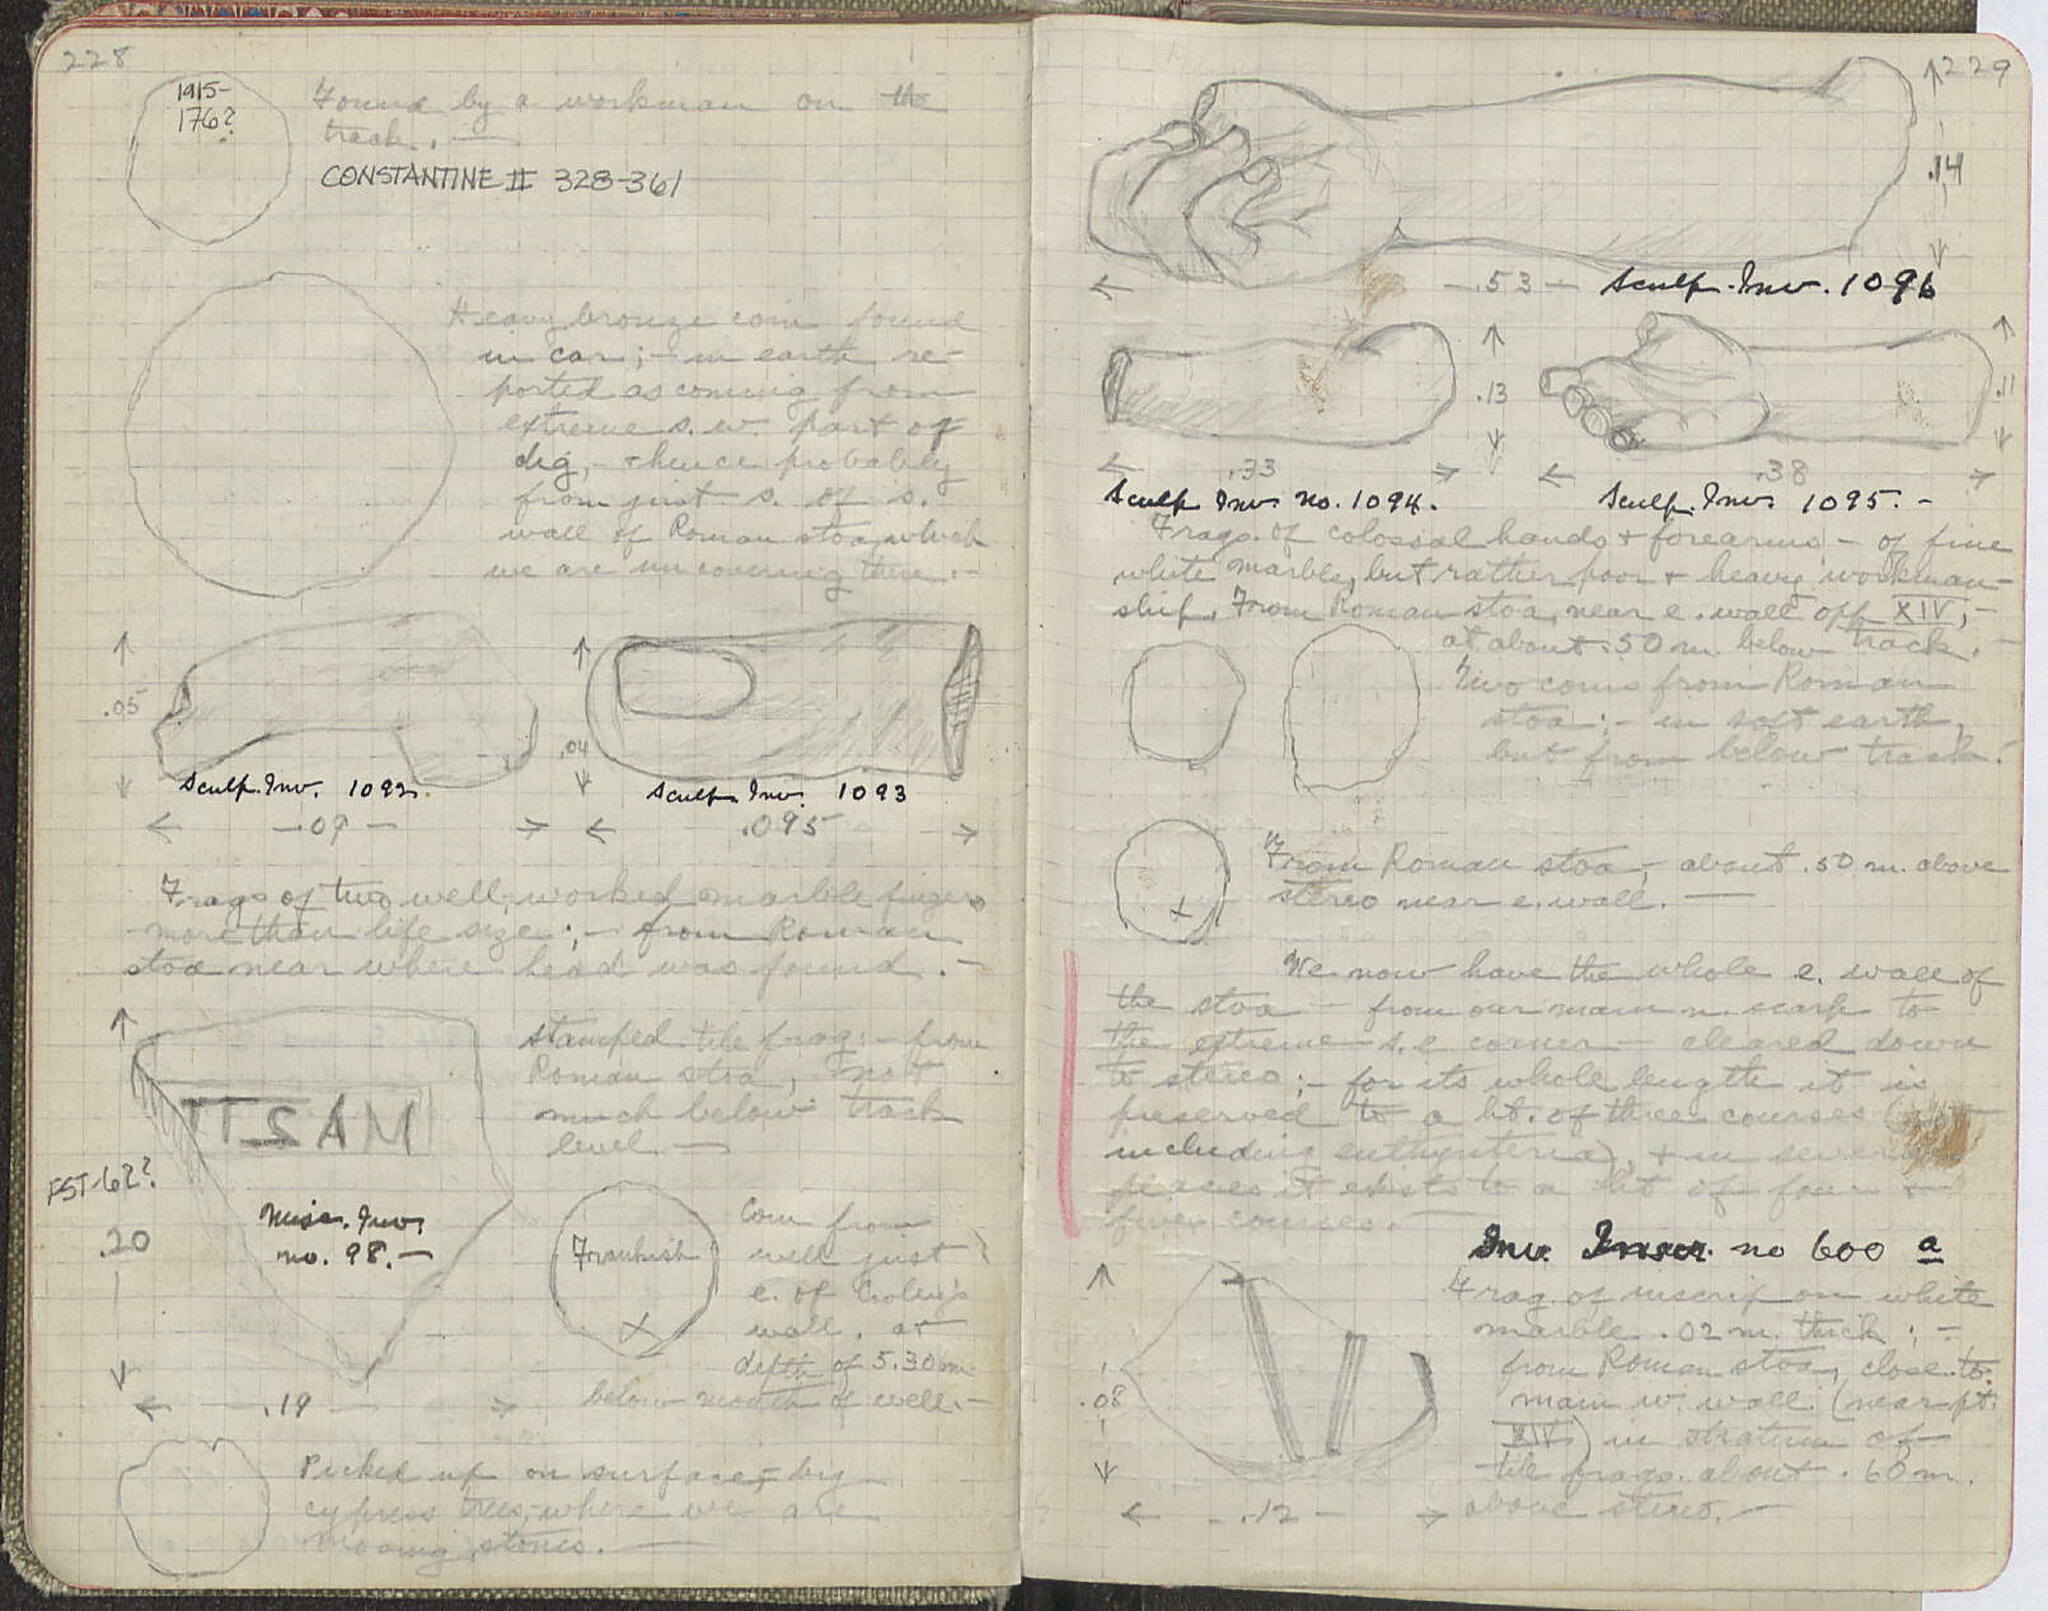 228
1915-
176?
Found by a workman on the
track. —
CONSTANTINE II 328-361
Heavy bronze coin found
in car; - in earth re-
ported as coming from
extreme s.w. part of
dig, - & hence probably
from just s. of s.
wall of Roman stoa which
we are uncovering there. -
.05
.04
Sculp. Inv. 1092.
Sculp. Inv. 1093
.09
.095
Frags of two well-worked marble fingers
more than life size; - from Roman
stoa near where head was found. -
Stamped tile frag: - from
Roman stoa, not
much below track
level. —
FST-62?
.20
Misc. Inv.
no. 98. -
Frankish
Coin from
well just
e. of
wall, at
depth of 5.30 m.
below mouth of well. -
.19
Picked up on surface, - by
cypress trees, where we are
moving stones. —
229
.14
.53
Sculp. Inv. 1096
.13
.11
.33
.38
Sculp. Inv. no. 1094.
Sculp. Inv. 1095. -
Frags. of colossal hands & forearms - of fine
white marble, but rather poor & heavy workman-
ship. From Roman stoa, near e. wall opp XIV, -
at about .50 m. below track. -
Two coins from Roman
stoa: - in soft earth,
but from below track. -
From Roman stoa, - about .50 m. above
stereo near e. wall. —
We now have the whole e. wall of
the stoa - from our main n. scarp to
the extreme s.e corner - cleared down
to stereo; - for its whole length it is
preserved to a ht. of three courses (
including euthynteria), & in several
places it exists to a ht of four &
five courses. -
Inv. Inscr. no 600 a
Frag. of inscrip on white
marble .02 m. thick; -
from Roman stoa, close to
main w. wall (near pt.
XIV) in stratum of
tile frags. about .60 m.
above stereo. -
.08
.12